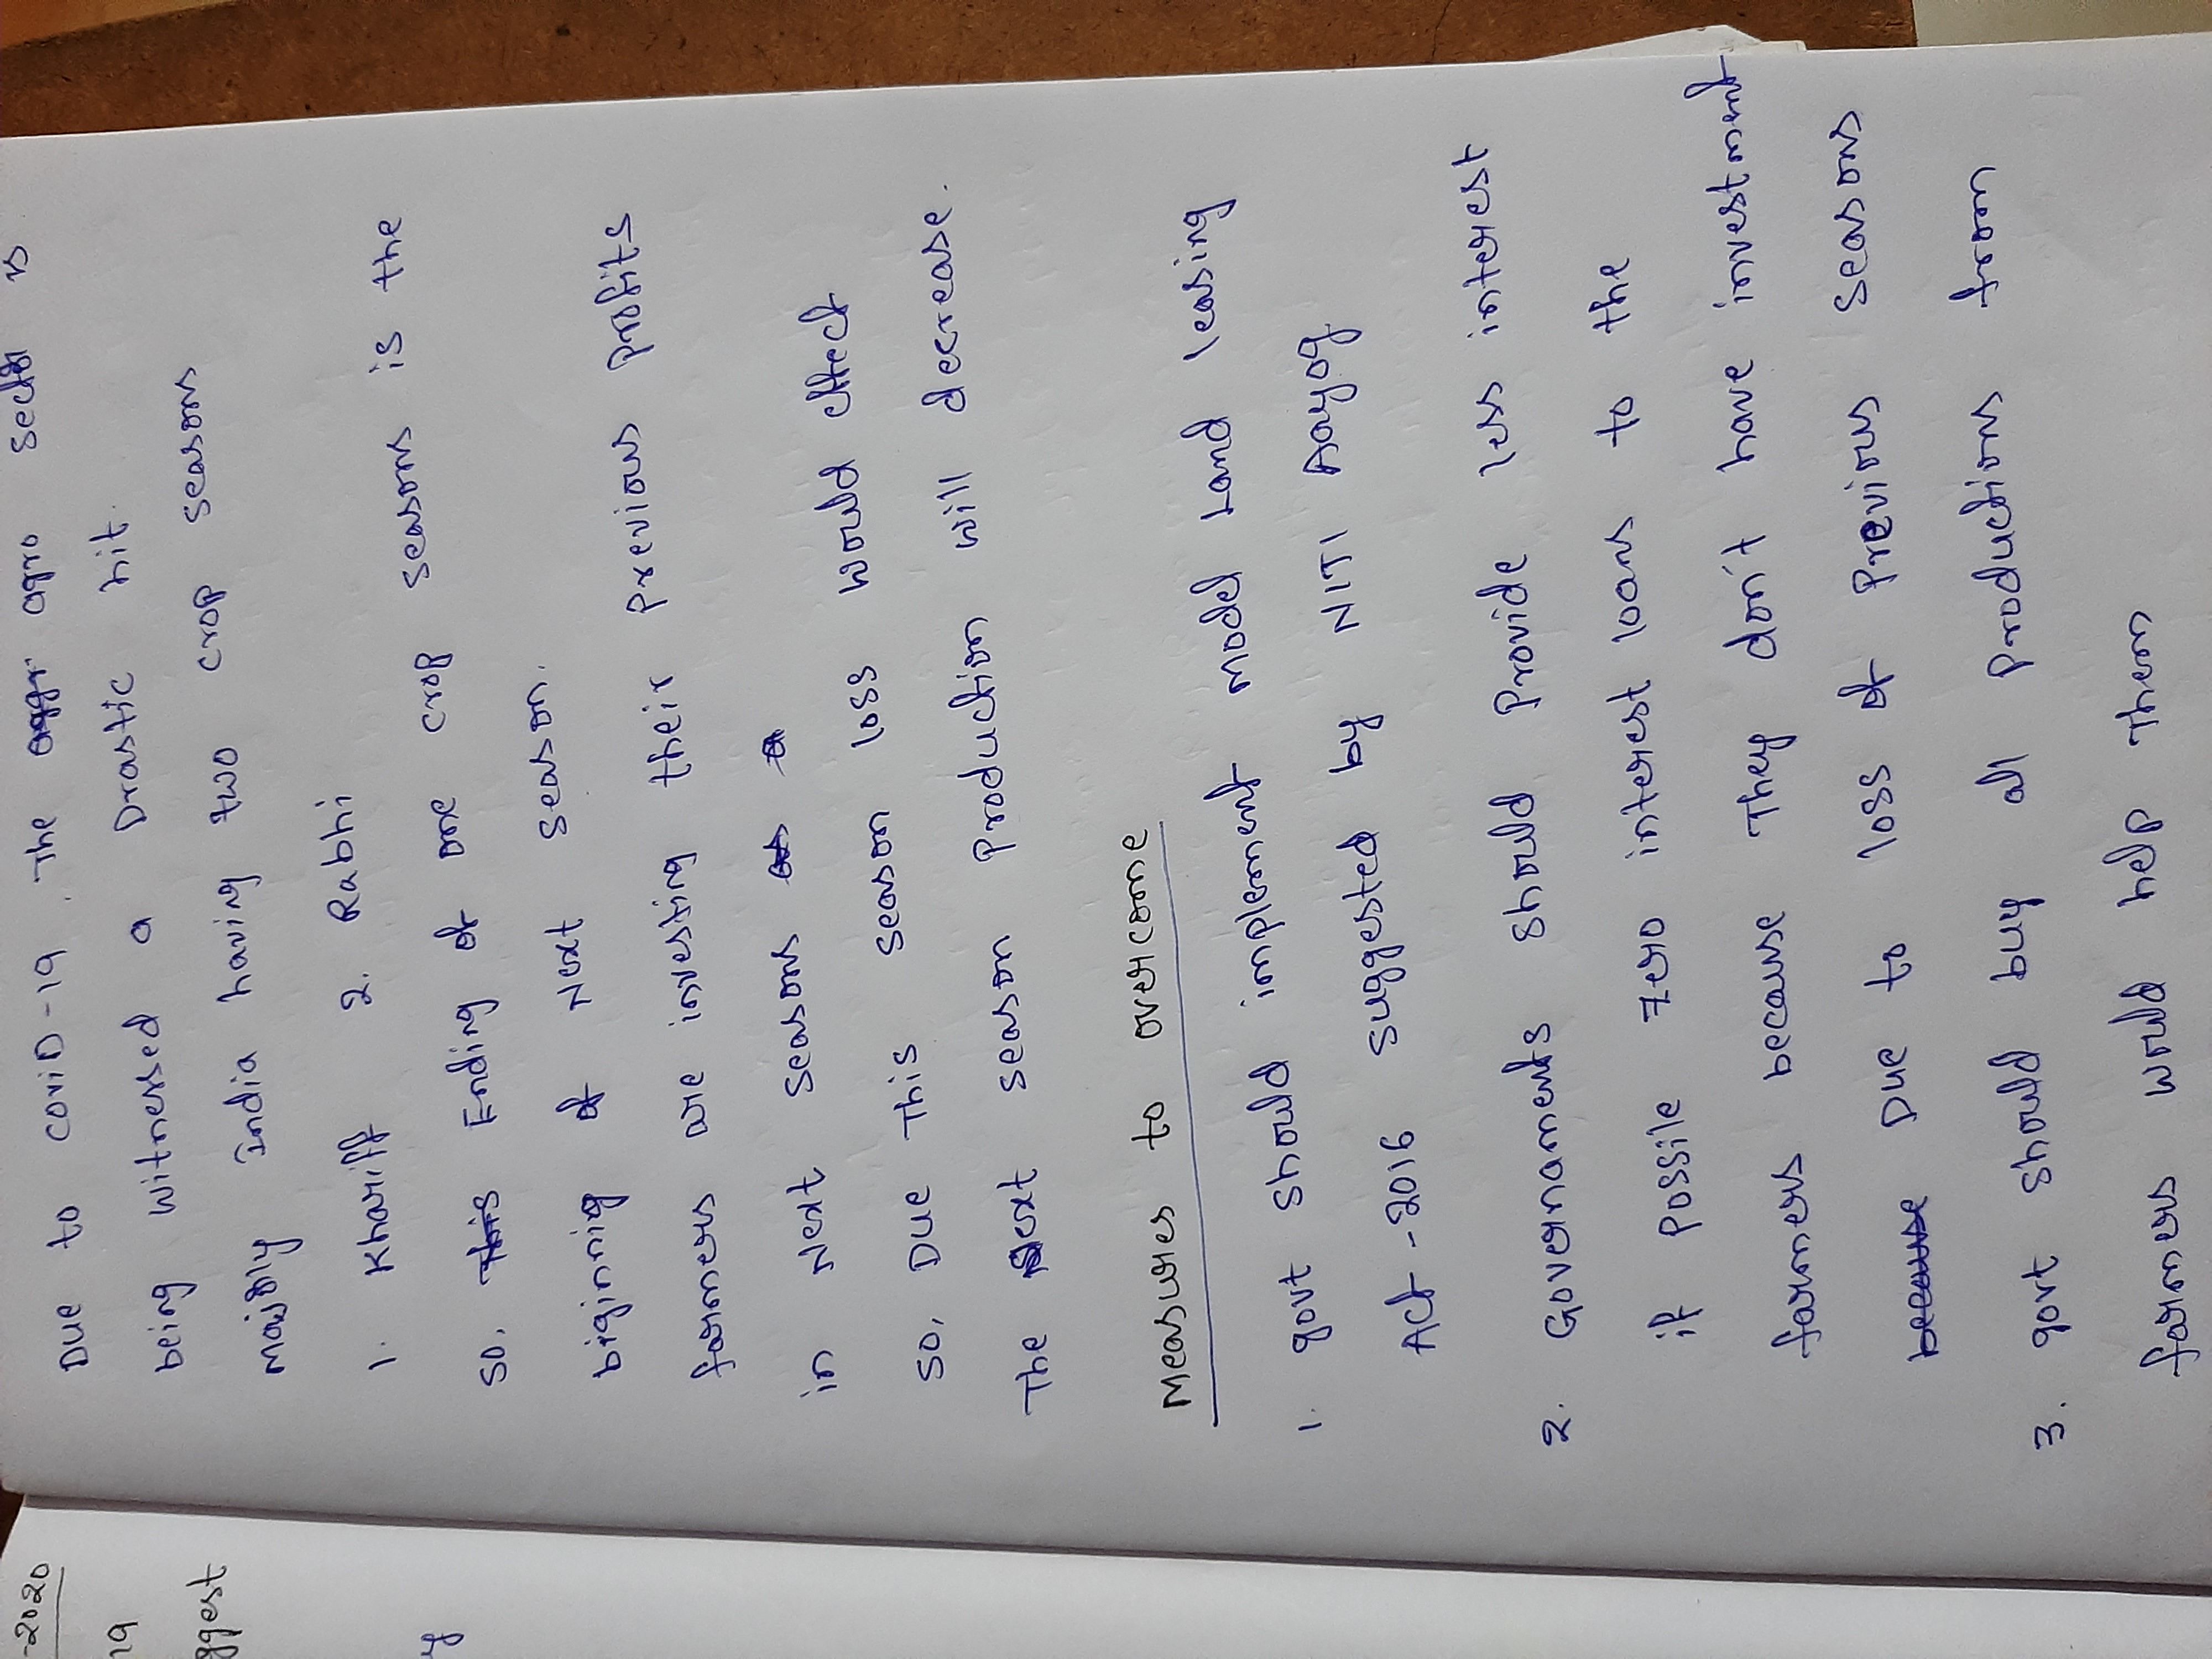 Due to COVID-19. The agro sector is
being witnessed a Drastic hit.
majorly India having two crop seasons
1. Khariff 2. Rabhi
so, this Ending of one crop seasons is the
biginning of Next season.
farmers are investing their previous profits
in Next seasons
so, Due This season loss would effect
The Next season production will decrease.
Measures to overcome
1. govt should implement model Land leasing
Act-2016 suggested by NITI Aayog
2. Governaments should Provide less interest
if Possile zero interest loans to the
farmers because They don't have investment
because Due to loss of Previous seasons
3. govt should buy all productions from
farmers would help them
-2020
19
ggest
y